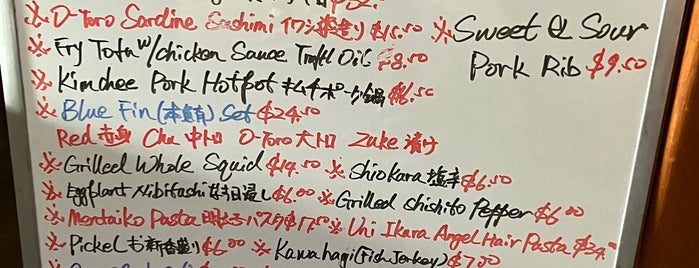 ※ O-Toro Sardine Sashimi イワシ造り $15.50
※ Sweet & Sour
Pork Rib $9.50
※ Fry Tofu w/chicken Sauce Truffl Oil $8.50
※ Kimchee Pork Hotpot キムチポーク鍋 $16.50
※ Blue Fin (本鮪) Set $24.50
Red 赤身 Chu 中トロ O-Toro 大トロ Zuke 漬け
※ Grilled Whole Squid $14.50 ※ Shiokara 塩辛 $6.50
※ Eggplant Nibitashi $6.00 ※ Grilled shishito Pepper $6.00
※ Mentaiko Pasta 明太子パスタ $17.50 ※ Uni Ikura Angel Hair Pasta
※ Pickel $6.00 ※ Kawahagi (Fish Jerkey) $7.00